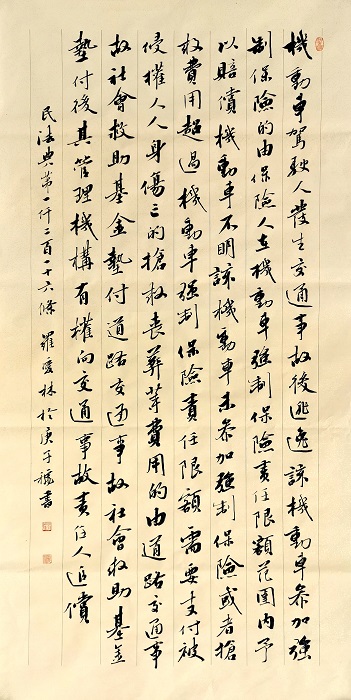 機動車駕駛人發生交通事故後逃逸該機動車參加強
制保險的由保險人在機動車強制保險責任限額范圍内予
以賠償機動車不明該機動車未參加強制保險或者搶
救費用超過機動車強制保險責任限額需要支付被
侵權人人身傷亡的搶救喪葬等費用的由道路交通事
故社會救助基金墊付道路交通事故社會救助基金
墊付後其管理機構有權向交通事故責任人追償
民法典第一仟二百一十六條 羅愛林於庚子穐書